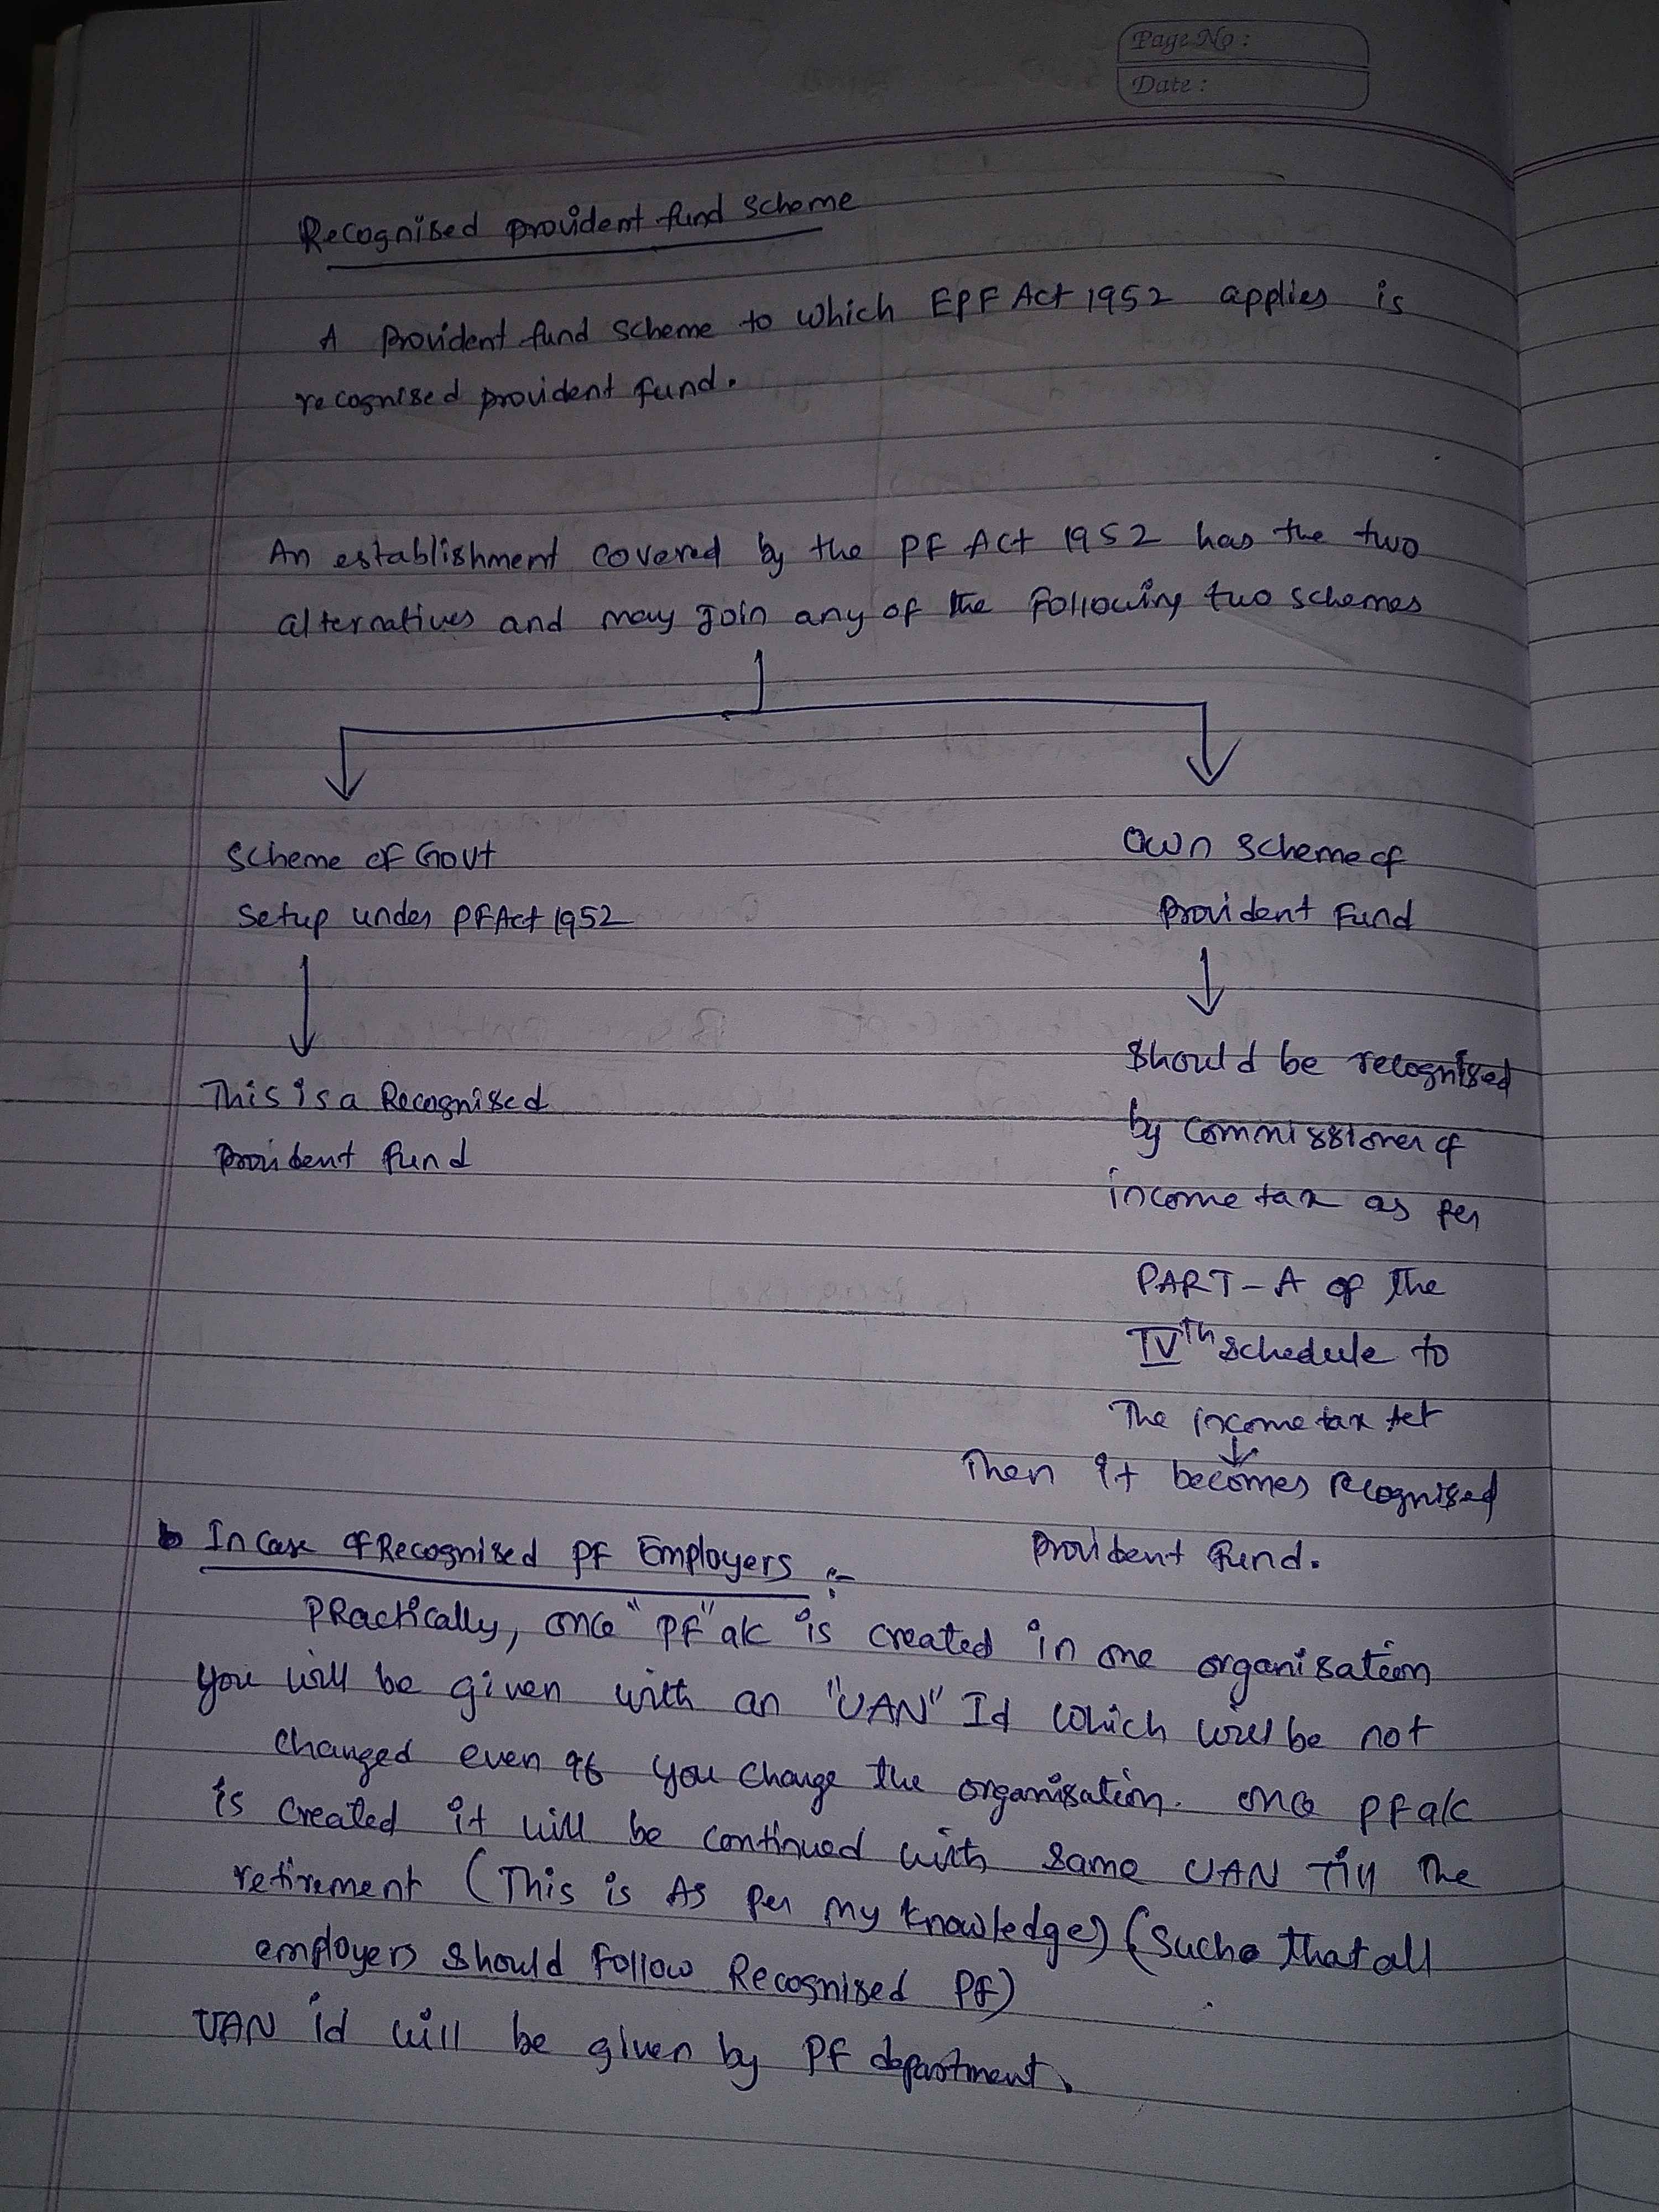 Page No :
Date :
Recognised provident fund scheme
A Provident fund scheme to which EPF Act 1952 applies is
recognised provident fund.
An establishment covered by the PF ACt 1952 has the two
alternatives and may join any of the following two schemes
Scheme of Govt
Setup under PFAct 1952
This is a Recognised
Provident fund
Own scheme of
Provident Fund
Should be recognised
by commissioner of
income tax as per
PART-A of the
IVth schedule to
The income tax Act
Then it becomes Recognised
Provident fund.
In case of Recognised PF Employers :-
PRactically, once "PF" a/c is created in one organisation
you will be given with an "UAN" Id which will be not
changed even if you change the organisation. once PF a/c
is created it will be continued with same UAN Till The
retirement (This is As per my knowledge) (Suche that all
employers should follow Recognised PF)
UAN id will be given by PF department.